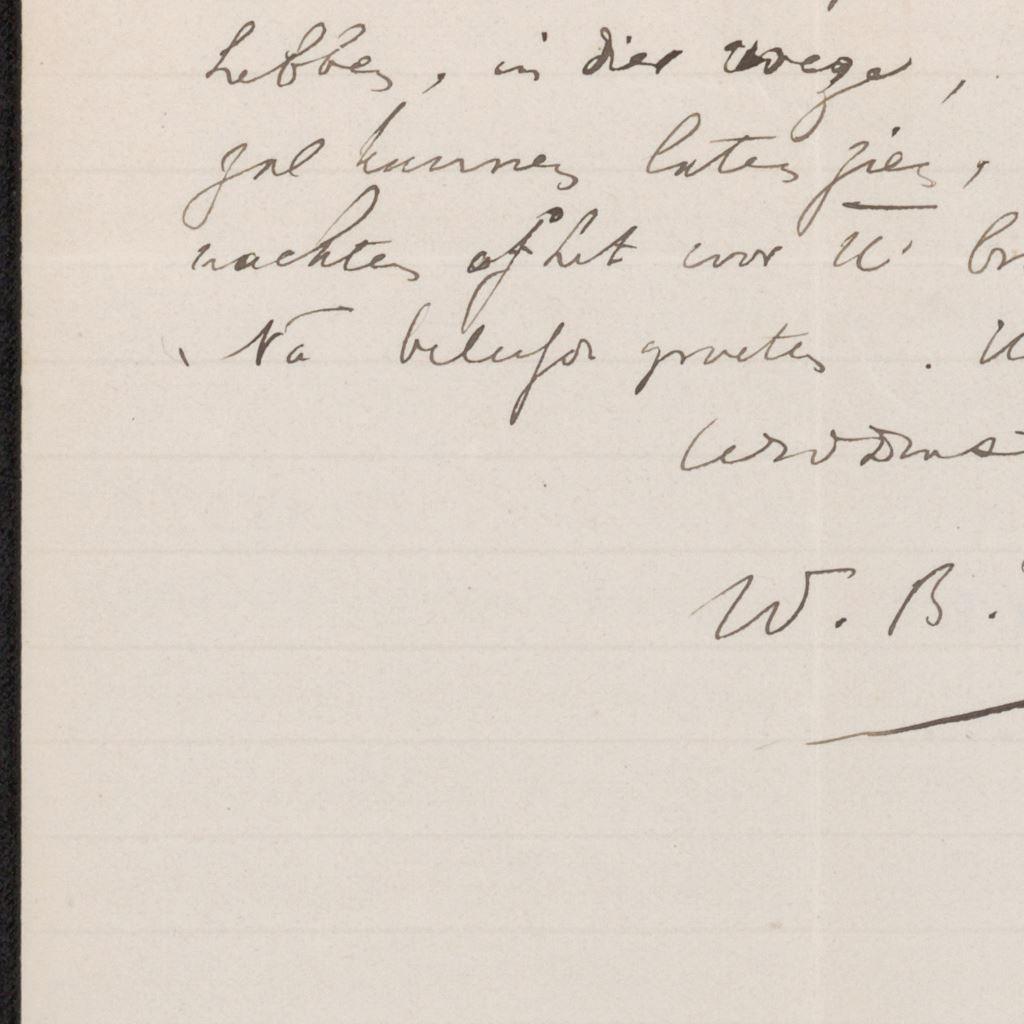 hebben, in dier voege,
zal kunnen laten zien,
wachten of het voor U
Na beleefde groeten. U
W. B.